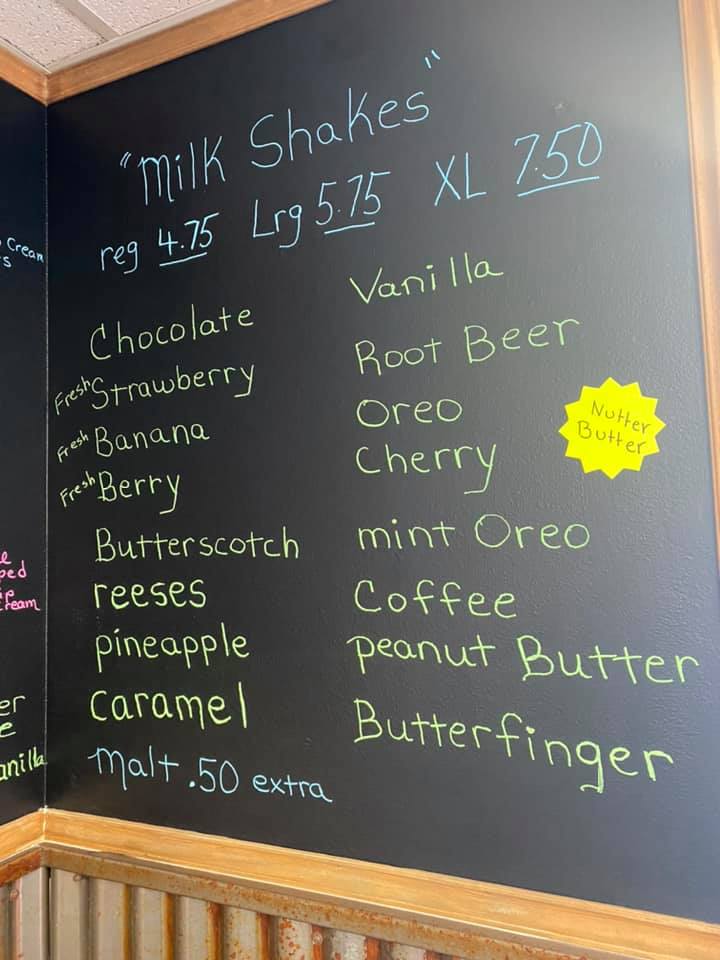 "Milk Shakes"
reg 4.75 Lrg 5.75 XL 7.50
Chocolate
Fresh Strawberry
Fresh Banana
Fresh Berry
Butterscotch
reeses
pineapple
caramel
malt .50 extra
Vanilla
Root Beer
Oreo
Cherry
mint Oreo
Coffee
peanut Butter
Butterfinger
Nutter
Butter
Cream